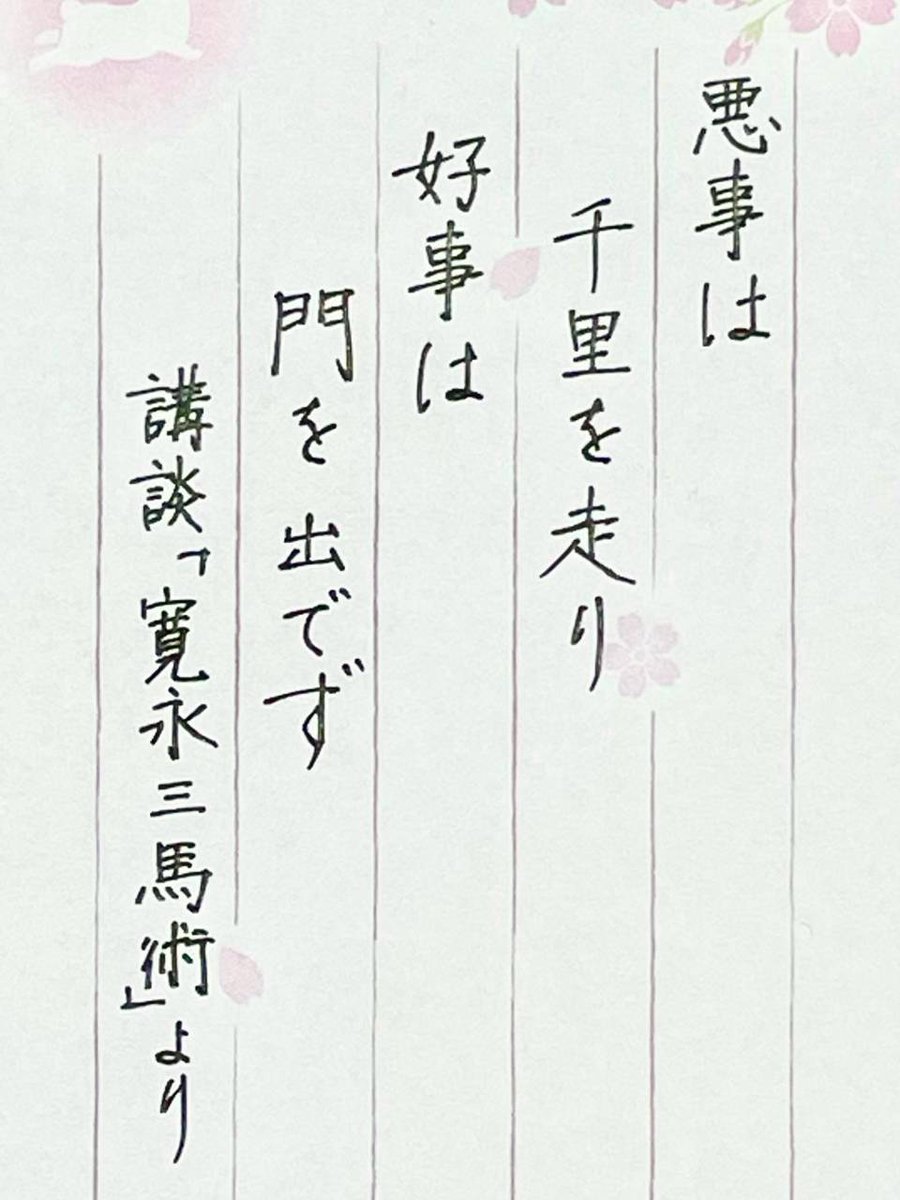 悪事は
千里を走り
好事は
門を出でず
講談「寛永三馬術」より